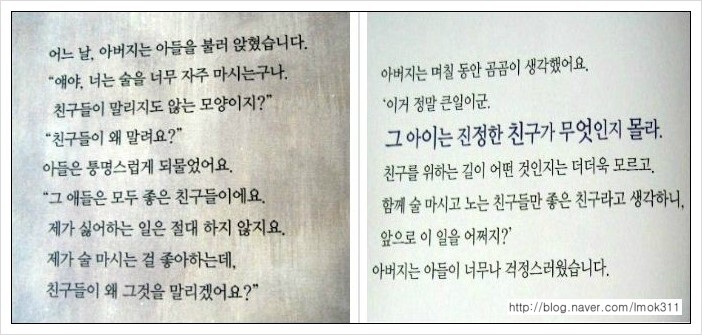 어느 날, 아버지는 아들을 불러 앉혔습니다.
“얘야, 너는 술을 너무 자주 마시는구나.
친구들이 말리지도 않는 모양이지?”
“친구들이 왜 말려요?”
아들은 퉁명스럽게 되물었어요.
“그 애들은 모두 좋은 친구들이에요.
제가 싫어하는 일은 절대 하지 않지요.
제가 술 마시는 걸 좋아하는데,
친구들이 왜 그것을 말리겠어요?”
아버지는 며칠 동안 곰곰이 생각했어요.
‘이거 정말 큰일이군.
그 아이는 진정한 친구가 무엇인지 몰라.
친구를 위하는 길이 어떤 것인지는 더더욱 모르고.
함께 술 마시고 노는 친구들만 좋은 친구라고 생각하니,
앞으로 이 일을 어쩌지?’
아버지는 아들이 너무나 걱정스러웠습니다.
http://blog.naver.com/lmok311